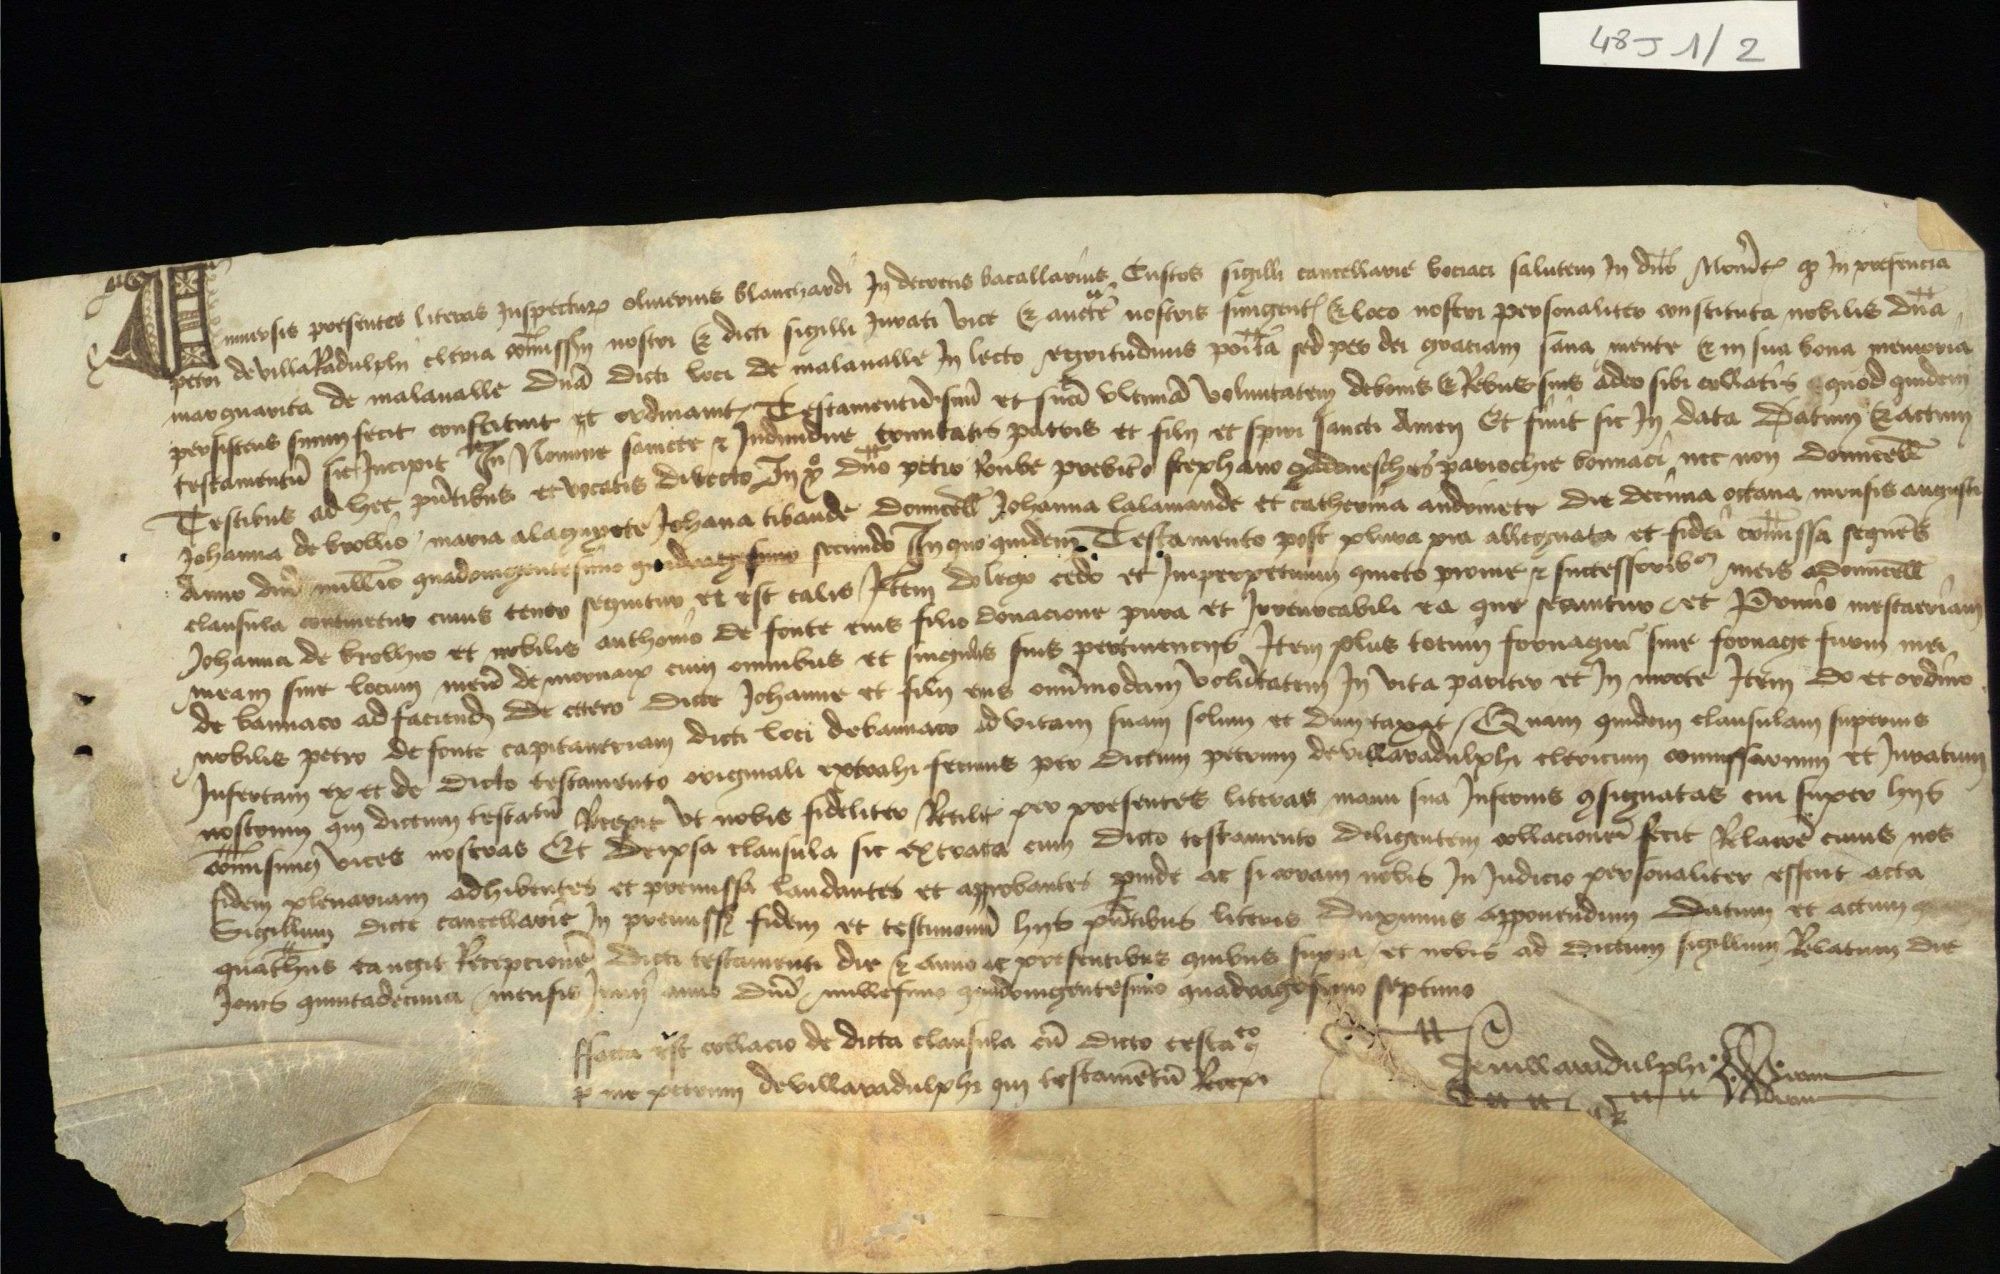 48 J 1/2
Universis presentes literas Inspectur olinerius blanchardi In decretis bacallarius Custos sigilli cancellarie bociaci salutem In dno Nouit q In presencia
petri de villaRadulphi clerici comissy nostri & dicti sigilli Jurati vice & aucte nostris fungent & loco nostri personaliter constituta nobilis dna
marguarita de malaualle dna dicti loci de malaualle In lecto egritudinis posita sed per dei graciam sana mente & in sua bona memoria
persistens suum fecit constituit et ordinauit Testamentu suu et sua vltima voluntatem de bonis & Rebus suis a deo sibi collatis quod quidem
testamentu sic Incipit In Nomine sancte & Indiuidue trinitatis patris et filii et spiri sancti Amen Et finit sic In data Datum & actum
Testibus ad hec pntibus et vocatis directo In xo dno petro Roube prebito stephano parrochie bonnaci nec non domicell
Johanna de brolhio maria alaguyete Johana tibaude domicell Johanna lalamande et catherina andriuete die decima octaua mensis augusti
Anno dni millio quadringentesimo quadragesimo secundo In quo quidem Testamento post plura pia allegata et fidei comissa sequens
clausula continetur cuius tenor sequitur et est talis Item do lego cedo et Imperpetuum quicto pro me & successoribus meis domicell
Johanna de brolhio et nobilis anthonio de fonte eius filio donacione pura et Irreuocabili ea que secuntur et Primo mestaeriam
meam siue locum meu de mornaix cum omnibus et singulis suis pertinenciis Item plus totum fornagiu siue fornage furni mei
de bannaco ad faciend de cetero dicte Johanne et filii eius omnimodam voluntatem In vita pariter et In morte Item do et ordino
nobilis petro de fonte capitaneriam dicti loci de bannaco ad vitam suam solum et dumtaxat Quam quidem clausulam superius
Insertam ex et de dicto testamento originali extrahi fecimus per dictum petrum de villaradulphi clericum comissarium et Juratum
nostrum qui dictum testatu Recepit vt nobis fideliter Retulit per presentes literas manu sua Inferius csignatas cui super hiis
comisimus vices nostras Et de ipsa clausula sic extrata cum dicto testamento diligentem collacione fecit Relacoe cuius nos
fidem plenariam adhibentes et premissa laudantes et approbantes proinde ac si coram nobis In Judicio personaliter essent acta
Sigillum dicte cancellarie In premiss fidem et testimoniu hiis pntibus literis duximus apponendum Datum et actum
quathus tangit Recepcione dicti testamenti die & anno ac presentibus quibus supra et nobis ad dictum sigillum Relatum die
Jouis quintadecima mensis Junii anno dni millesimo quadringentesimo quadragesimo septimo
ffacta est collacio de dicta clausula cu dicto testato
p me petrum de villaradulphi qui testamentu Recepi
De villaradulphi